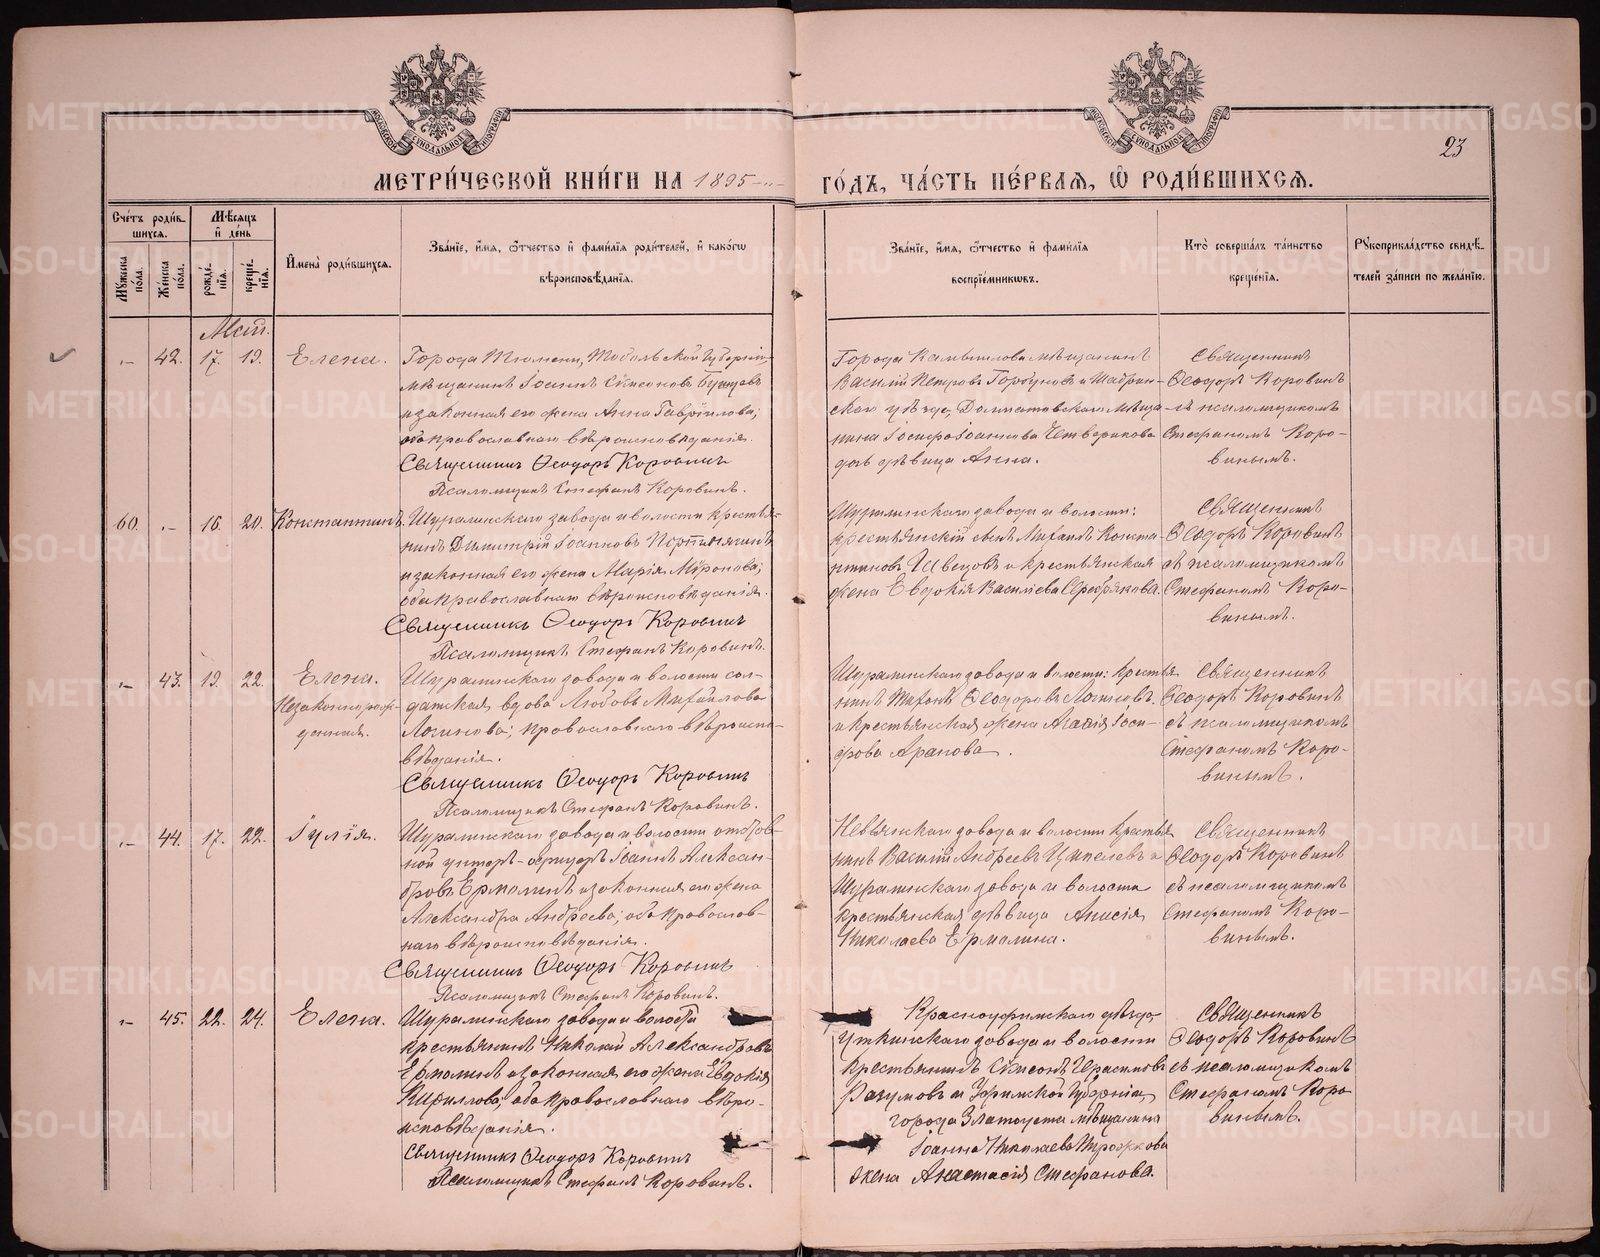 МЕТРИ́ЧЕСКОЙ КНИ́ГИ НА 1895
ГО́ДЪ, ЧА́СТЬ ПЕ́РВАѦ, Ѽ РОДИ́ВШИХСѦ.
23
Сче́тъ роди́в
шихсѧ.
Мѣ́сѧцъ
и҆ де́нь
Мꙋ́жеска по́ла.
Же́нска по́ла.
рожде́нїѧ.
креще́нїѧ.
И҆мена̀ роди́вшихсѧ.
Зва́нїе, и҆́мѧ, ѻ҆́тчество и҆ фами́лїѧ роди́телей, и҆ како́гѡ
вѣроисповѣ́данїѧ.
Зва́нїе, и҆́мѧ, ѻ҆́тчество и҆ фами́лїѧ
воспрїе́мникѡвъ.
Кто̀ соверша́лъ та́инство
креще́нїѧ.
Рꙋкоприкла́дство свидѣ́
телей за́писи по жела́нїю.
Май.
42. 17. 19. Елена.
Города Тюмени, Тобольской губернiи
мѣщанинъ Iоаннъ Сѵмеоновъ
и законная его жена Анна Гаврiилова;
оба православнаго вѣроисповѣданiя.
Священникъ Ѳеодоръ Коровинъ
Псаломщикъ Стефанъ Коровинъ.
Города Камышлова мѣщанинъ
Василiй Петровъ Горбуновъ и Шадрин-
скаго уѣзда, Далматовскаго мѣща-
нина Iосифа Iоаннова Четверикова
дочь дѣвица Анна.
Священникъ
Ѳеодоръ Коровинъ
съ псаломщикомъ
Стефаномъ Коро-
винымъ.
60. 16. 20. Константинъ.
Шуралинскаго завода и волости крестья-
нинъ Димитрiй Iоанновъ
и законная его жена Марiя Мѵронова;
оба православнаго вѣроисповѣданiя.
Священникъ Ѳеодоръ Коровинъ
Псаломщикъ Стефанъ Коровинъ.
Шуралинскаго завода и волости:
крестьянскiй сынъ Михаилъ Конста-
нтиновъ Швецовъ и крестьянская
жена Евдокiя Василiева Серебрякова.
Священникъ
Ѳеодоръ Коровинъ
съ псаломщикомъ
Стефаномъ Коро-
винымъ.
43. 19. 22. Елена.
Незаконнорож-
денная.
Шуралинскаго завода и волости сол-
датская вдова Любовь Михайлова
Логинова; православнаго вѣроиспо-
вѣданiя.
Священникъ Ѳеодоръ Коровинъ
Псаломщикъ Стефанъ Коровинъ.
Шуралинскаго завода и волости: крестья
нинъ Тихонъ Ѳеодоровъ Логиновъ
и крестьянская жена Агафiя Iоси-
фова Арапова.
Священникъ
Ѳеодоръ Коровинъ
съ псаломщикомъ
Стефаномъ Коро-
винымъ.
44. 17. 22. Iулiя.
Шуралинскаго завода и волости отстав-
ной унтеръ-офицеръ Iоаннъ Алексан-
дровъ Ермолинъ и законная его жена
Александра Андреева; оба православ-
наго вѣроисповѣданiя.
Священникъ Ѳеодоръ Коровинъ
Псаломщикъ Стефанъ Коровинъ.
Невьянскаго завода и волости крестья
нинъ Василiй Андреевъ и
Шуралинскаго завода и волости
крестьянская дѣвица Анисiя
Николаева Ермолина.
Священникъ
Ѳеодоръ Коровинъ
съ псаломщикомъ
Стефаномъ Коро-
винымъ.
45. 22. 24. Елена.
Шуралинскаго завода и волости
крестьянинъ Николай Александровъ
Ермолинъ и законная его жена Евдокiя
Кириллова; оба православнаго вѣро-
исповѣданiя.
Священникъ Ѳеодоръ Коровинъ
Псаломщикъ Стефанъ Коровинъ.
Красноуфимскаго уѣзда,
Уткинскаго завода и волости
крестьянинъ Сѵмеонъ Герасимовъ
Разумовъ и Уфимской губернiи,
города Златоуста мѣщанина
Iоанна Николаева
жена Анастасiя Стефанова.
Священникъ
Ѳеодоръ Коровинъ
съ псаломщикомъ
Стефаномъ Коро
винымъ.
METRIKI.GASO-URAL.RU